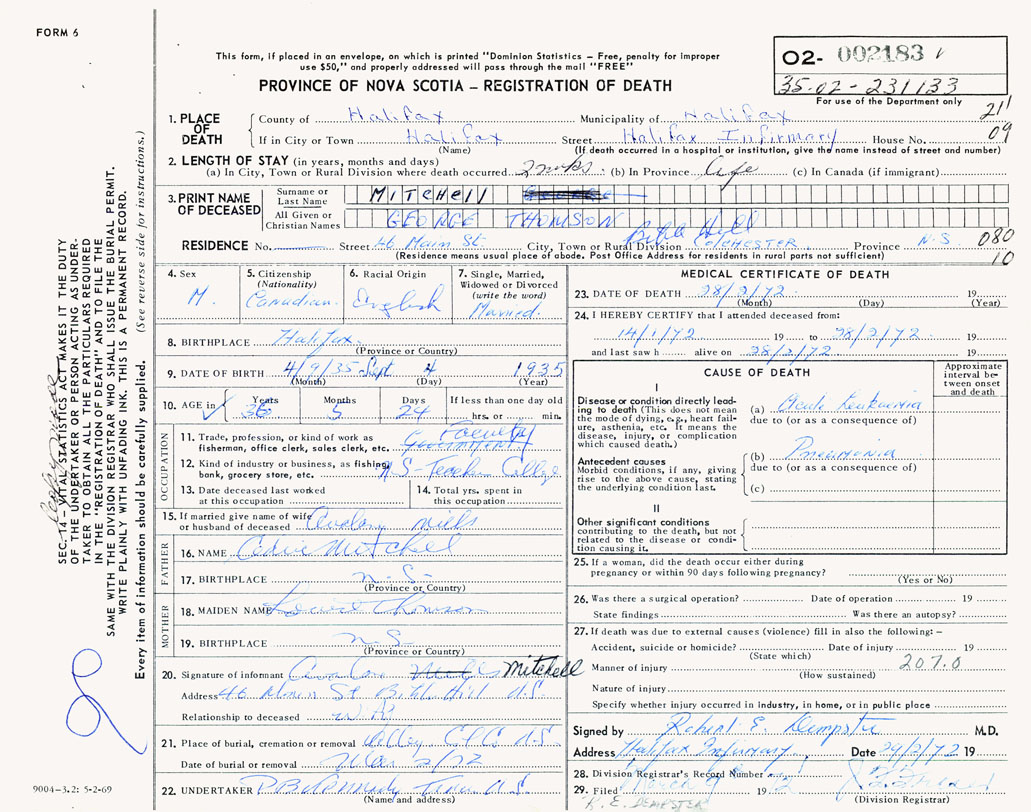 FORM 6
This form, if placed in an envelope, on which is printed "Dominion Statistics – Free, penalty for improper
use $50," and properly addressed will pass through the mail "FREE"
PROVINCE OF NOVA SCOTIA – REGISTRATION OF DEATH
O2- 002183
35-02-231133
For use of the Department only
211
09
1. PLACE OF DEATH
County of Halifax Municipality of Halifax
If in City or Town Halifax Street Halifax Infirmary House No.
(Name) (If death occurred in a hospital or institution, give the name instead of street and number)
2. LENGTH OF STAY (in years, months and days)
(a) In City, Town or Rural Division where death occurred 2 wks (b) In Province Life (c) In Canada (if immigrant)
3. PRINT NAME OF DECEASED
Surname or Last Name MITCHELL
All Given or Christian Names GEORGE THOMSON
RESIDENCE No. Street 46 Main St. City, Town or Rural Division Bible Hill COLCHESTER Province N.S. 080
(Residence means usual place of abode. Post Office Address for residents in rural parts not sufficient) 10
4. Sex M.
5. Citizenship (Nationality) Canadian
6. Racial Origin English
7. Single, Married, Widowed or Divorced (write the word) Married.
8. BIRTHPLACE Halifax
(Province or Country)
9. DATE OF BIRTH 4/9/35 Sept 4 1935
(Month) (Day) (Year)
10. AGE in Years Months Days If less than one day old
36 5 24 hrs. or min.
OCCUPATION
11. Trade, profession, or kind of work as
fisherman, office clerk, sales clerk, etc. Faculty
12. Kind of industry or business, as fishing,
bank, grocery store, etc. N-S-Teachers College
13. Date deceased last worked
at this occupation
14. Total yrs. spent in
this occupation
15. If married give name of wife
or husband of deceased Mills
FATHER
16. NAME Mitchell
17. BIRTHPLACE N-S-
(Province or Country)
MOTHER
18. MAIDEN NAME Louise Thomson
19. BIRTHPLACE N-S
(Province or Country)
20. Signature of informant Mitchell
Address 46 Main St Bible Hill N.S
Relationship to deceased
21. Place of burial, cremation or removal N.S.
Date of burial or removal Mar 2/72
22. UNDERTAKER Truro N.S.
(Name and address)
MEDICAL CERTIFICATE OF DEATH
23. DATE OF DEATH 28/2/72 19
(Month) (Day) (Year)
24. I HEREBY CERTIFY that I attended deceased from:
14/1/72 19 to 28/2/72 19
and last saw h alive on 28/2/72 19
CAUSE OF DEATH
Approximate interval between onset and death
I
Disease or condition directly leading
to death (This does not mean
the mode of dying, e.g., heart failure,
asthenia, etc. It means the
disease, injury, or complication
which caused death.)
(a) Acute Leukaemia
due to (or as a consequence of)
Antecedent causes
Morbid conditions, if any, giving
rise to the above cause, stating
the underlying condition last.
(b) Pneumonia
due to (or as a consequence of)
(c)
II
Other significant conditions
contributing to the death, but not
related to the disease or condition
causing it.
25. If a woman, did the death occur either during
pregnancy or within 90 days following pregnancy?
(Yes or No)
26. Was there a surgical operation? Date of operation 19
State findings Was there an autopsy?
27. If death was due to external causes (violence) fill in also the following: –
Accident, suicide or homicide? Date of injury 19
(State which) 207.0
Manner of injury
(How sustained)
Nature of injury
Specify whether injury occurred in industry, in home, or in public place
Signed by Robert E. Dempster M.D.
Address Halifax Infirmary Date 29/2/72 19
28. Division Registrar's Record Number
29. Filed March 9 1972
(Division Registrar)
R. E. DEMPSTER
9004-3.2: 5-2-69
SEC. 14 – VITAL STATISTICS ACT MAKES IT THE DUTY
OF THE UNDERTAKER OR PERSON ACTING AS UNDERTAKER
TO OBTAIN ALL THE PARTICULARS REQUIRED
IN THE "REGISTRATION OF DEATH" AND TO FILE THE
SAME WITH THE DIVISION REGISTRAR WHO SHALL ISSUE THE BURIAL PERMIT.
WRITE PLAINLY WITH UNFADING INK. THIS IS A PERMANENT RECORD.
Every item of information should be carefully supplied. (See reverse side for instructions.)